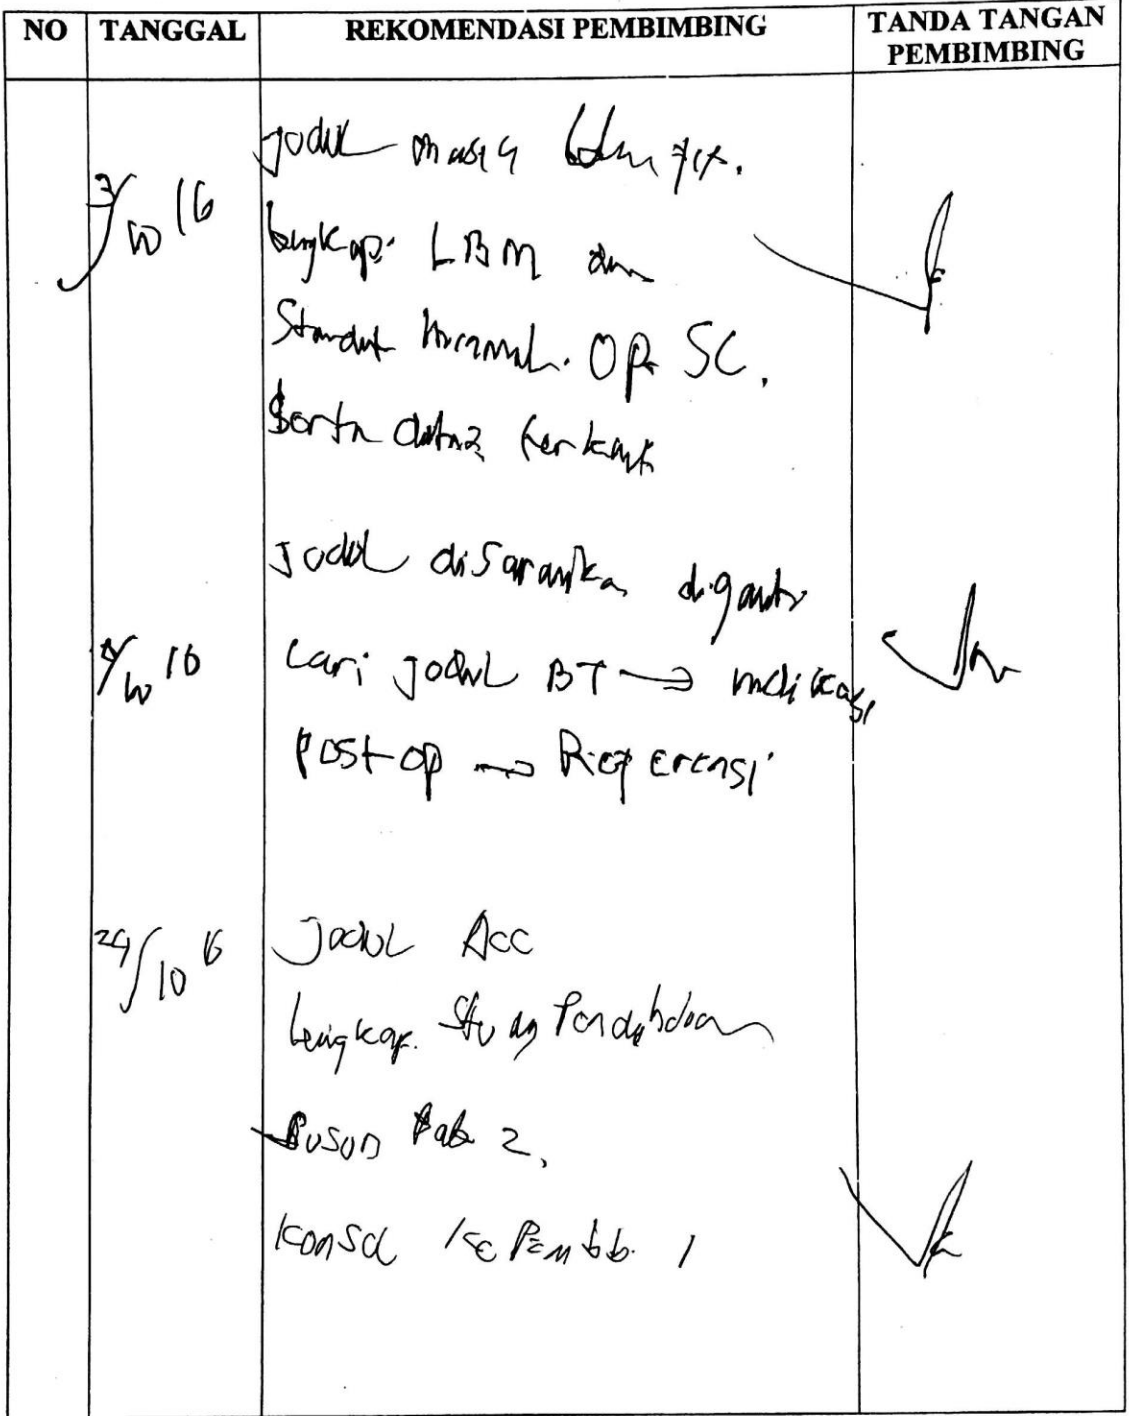 NO TANGGAL REKOMENDASI PEMBIMBING TANDA TANGAN PEMBIMBING
Judul masih
3/10 16
lengkapi LBM dan
Standar Op SC.
Serta data2 terkait
Judul disarankan diganti
/10 16 Cari judul BT → indikasi
Post op → Referensi
24/10 16 Judul Acc
lengkapi Study Pendahuluan
Susun Bab 2.
Konsul ke Pembb. 1